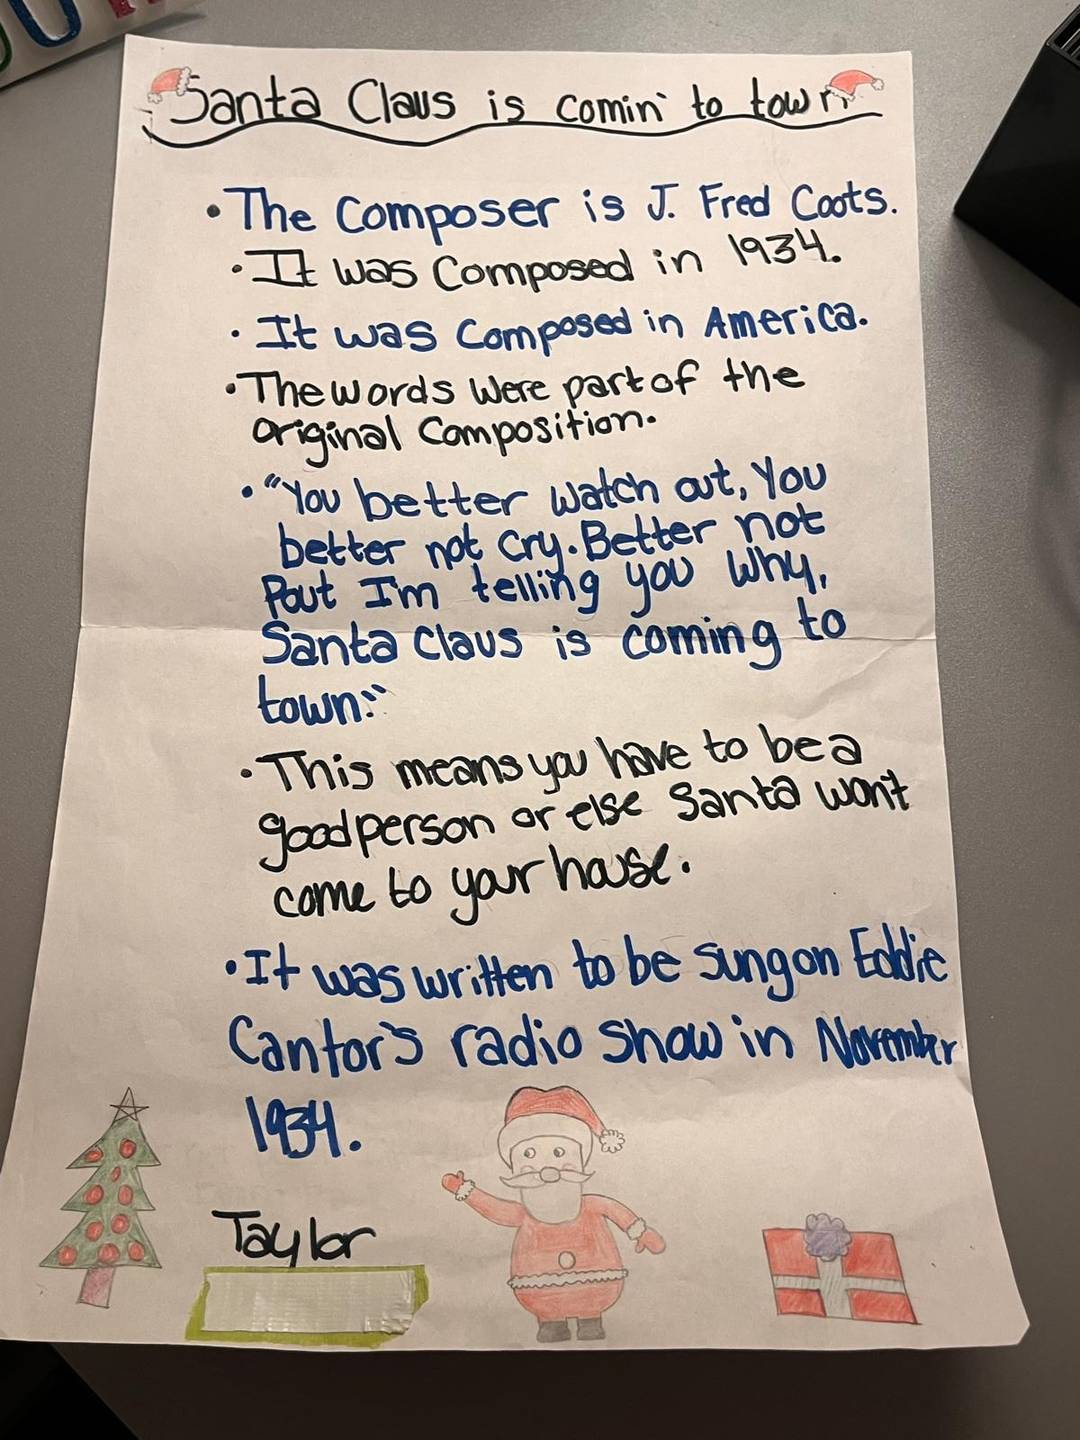 Santa Claus is comin' to town
• The Composer is J. Fred Coots.
• It was Composed in 1934.
• It was Composed in America.
• The words were part of the
original Composition.
• "You better watch out, You
better not cry. Better not
Pout I'm telling you why,
Santa Claus is coming to
town."
• This means you have to be a
good person or else Santa won't
come to your house.
• It was written to be sung on Eddie
Cantor's radio show in November
1934.
Taylor